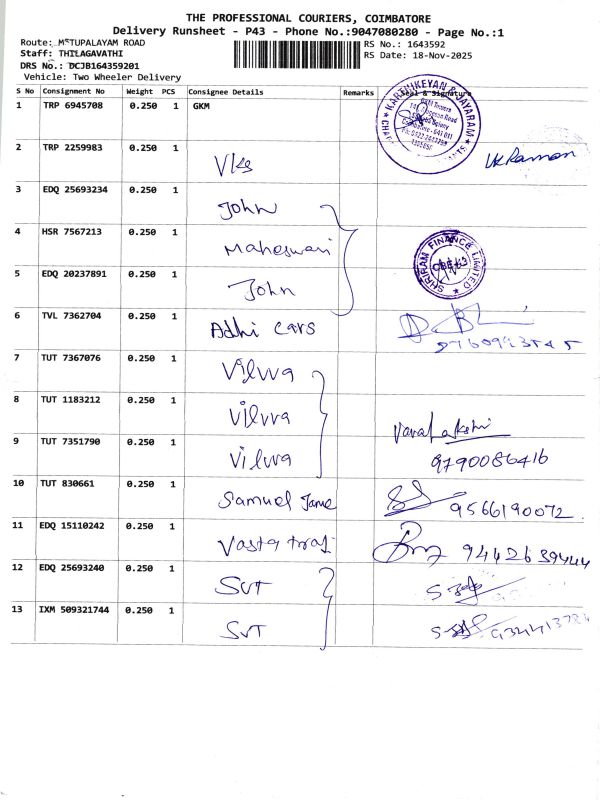 THE PROFESSIONAL COURIERS, COIMBATORE
Delivery Runsheet - P43 - Phone No.:9047080280 - Page No.:1
Route: METTUPALAYAM ROAD
Staff: THILAGAVATHI
DRS No.: DCJB164359201
Vehicle: Two Wheeler Delivery
RS No.: 1643592
RS Date: 18-Nov-2025
S No Consignment No Weight PCS Consignee Details Remarks Seal & Signature
1 TRP 6945708 0.250 1 GKM
KARTHIKEYAN & JAYARAM
2 TRP 2259983 0.250 1 Vks
VK Raman
3 EDQ 25693234 0.250 1 John
4 HSR 7567213 0.250 1 Maheswari
SHRIRAM FINANCE LIMITED
5 EDQ 20237891 0.250 1 John
6 TVL 7362704 0.250 1 Adhi cars
7 TUT 7367076 0.250 1 Vilvva
8 TUT 1183212 0.250 1 Vilvva
Varalakshi
9 TUT 7351790 0.250 1 Vilvva
9790086416
10 TUT 830661 0.250 1 Samuel Jame 9566190072
11 EDQ 15110242 0.250 1 Vasta 9442639444
12 EDQ 25693240 0.250 1 SVT
13 IXM 509321744 0.250 1 SVT